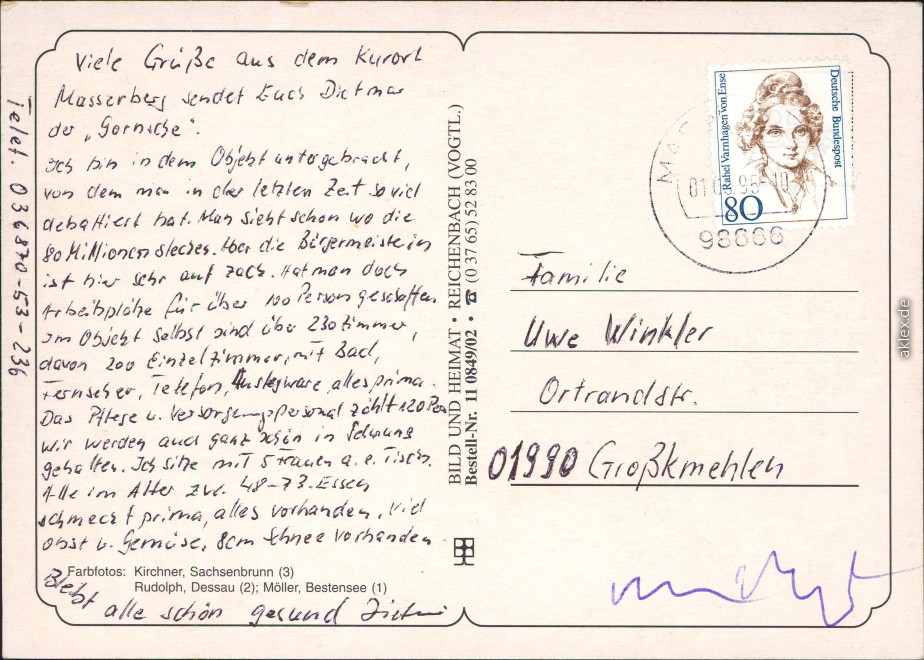 Viele Grüße aus dem Kurort
Masserberg sendet Euch Dietmar
der „Gornsche".
Ich bin in dem Objekt untergebracht,
von dem man in der letzten Zeit so viel
debattiert hat. Man sieht schon wo die
80 Millionen stecken. Aber die Bürgermeisterin
ist hier sehr auf zack. Hat man doch
Arbeitsplätze für über 100 Person geschaffen
Im Objekt selbst sind über 230 Zimmer,
davon 200 Einzelzimmer, mit Bad,
Fernseher, Telefon, Auslegware, alles prima.
Das Pflege u. Versorgungspersonal zählt 120 Per
Wir werden auch ganz schön in Schwung
gehalten. Ich sitze mit 5 Frauen a. e. Tisch.
Alle im Alter zw. 48-73. Essen
schmeckt prima, alles vorhanden, viel
Obst u. Gemüse, 8cm Schnee vorhanden
Bleibt alle schön gesund Dietmar
Telef. 036870-53-236
Farbfotos: Kirchner, Sachsenbrunn (3)
Rudolph, Dessau (2); Möller, Bestensee (1)
BILD UND HEIMAT • REICHENBACH (VOGTL.)
Bestell-Nr. 11 0849/02 • ☎ (0 37 65) 52 83 00
Deutsche Bundespost
Rahel Varnhagen von Ense
80
98666
Familie
Uwe Winkler
Ortrandstr.
01990 Großkmehlen
aklex.de